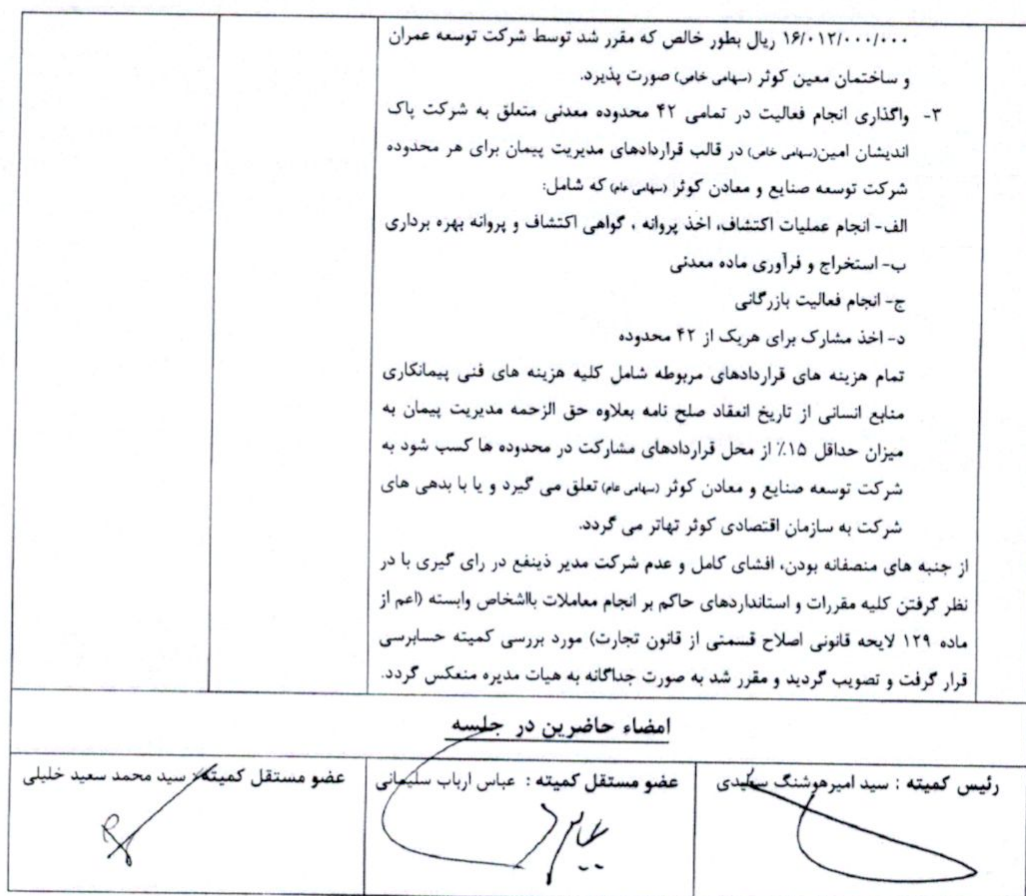 ۱۶/۰۱۲/۰۰۰/۰۰۰ ریال بطور خالص که مقرر شد توسط شرکت توسعه عمران
و ساختمان معین کوثر (سهامی خاص) صورت پذیرد.
۳- واگذاری انجام فعالیت در تمامی ۴۲ محدوده معدنی متعلق به شرکت پاک
اندیشان امین(سهامی خاص) در قالب قراردادهای مدیریت پیمان برای هر محدوده
شرکت توسعه صنایع و معادن کوثر (سهامی عام) که شامل:
الف- انجام عملیات اکتشاف، اخذ پروانه ، گواهی اکتشاف و پروانه بهره برداری
ب- استخراج و فرآوری ماده معدنی
ج- انجام فعالیت بازرگانی
د- اخذ مشارک برای هریک از ۴۲ محدوده
تمام هزینه های قراردادهای مربوطه شامل کلیه هزینه های فنی پیمانکاری
منابع انسانی از تاریخ انعقاد صلح نامه بعلاوه حق الزحمه مدیریت پیمان به
میزان حداقل ۱۵٪ از محل قراردادهای مشارکت در محدوده ها کسب شود به
شرکت توسعه صنایع و معادن کوثر (سهامی عام) تعلق می گیرد و یا با بدهی های
شرکت به سازمان اقتصادی کوثر تهاتر می گردد.
از جنبه های منصفانه بودن، افشای کامل و عدم شرکت مدیر ذینفع در رای گیری با در
نظر گرفتن کلیه مقررات و استانداردهای حاکم بر انجام معاملات بااشخاص وابسته (اعم از
ماده ۱۲۹ لایحه قانونی اصلاح قسمتی از قانون تجارت) مورد بررسی کمیته حسابرسی
قرار گرفت و تصویب گردید و مقرر شد به صورت جداگانه به هیات مدیره منعکس گردد.
امضاء حاضرین در جلسه
رئیس کمیته : سید امیرهوشنگ سعیدی
عضو مستقل کمیته : عباس ارباب سلیمانی
عضو مستقل کمیته : سید محمد سعید خلیلی